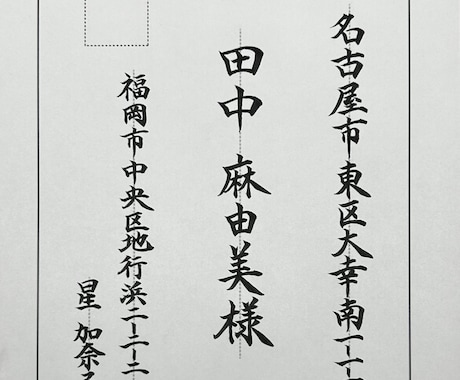 名古屋市東区大幸南一-一-
田中 麻由美様
福岡市中央区地行浜二-二-二
星 加奈